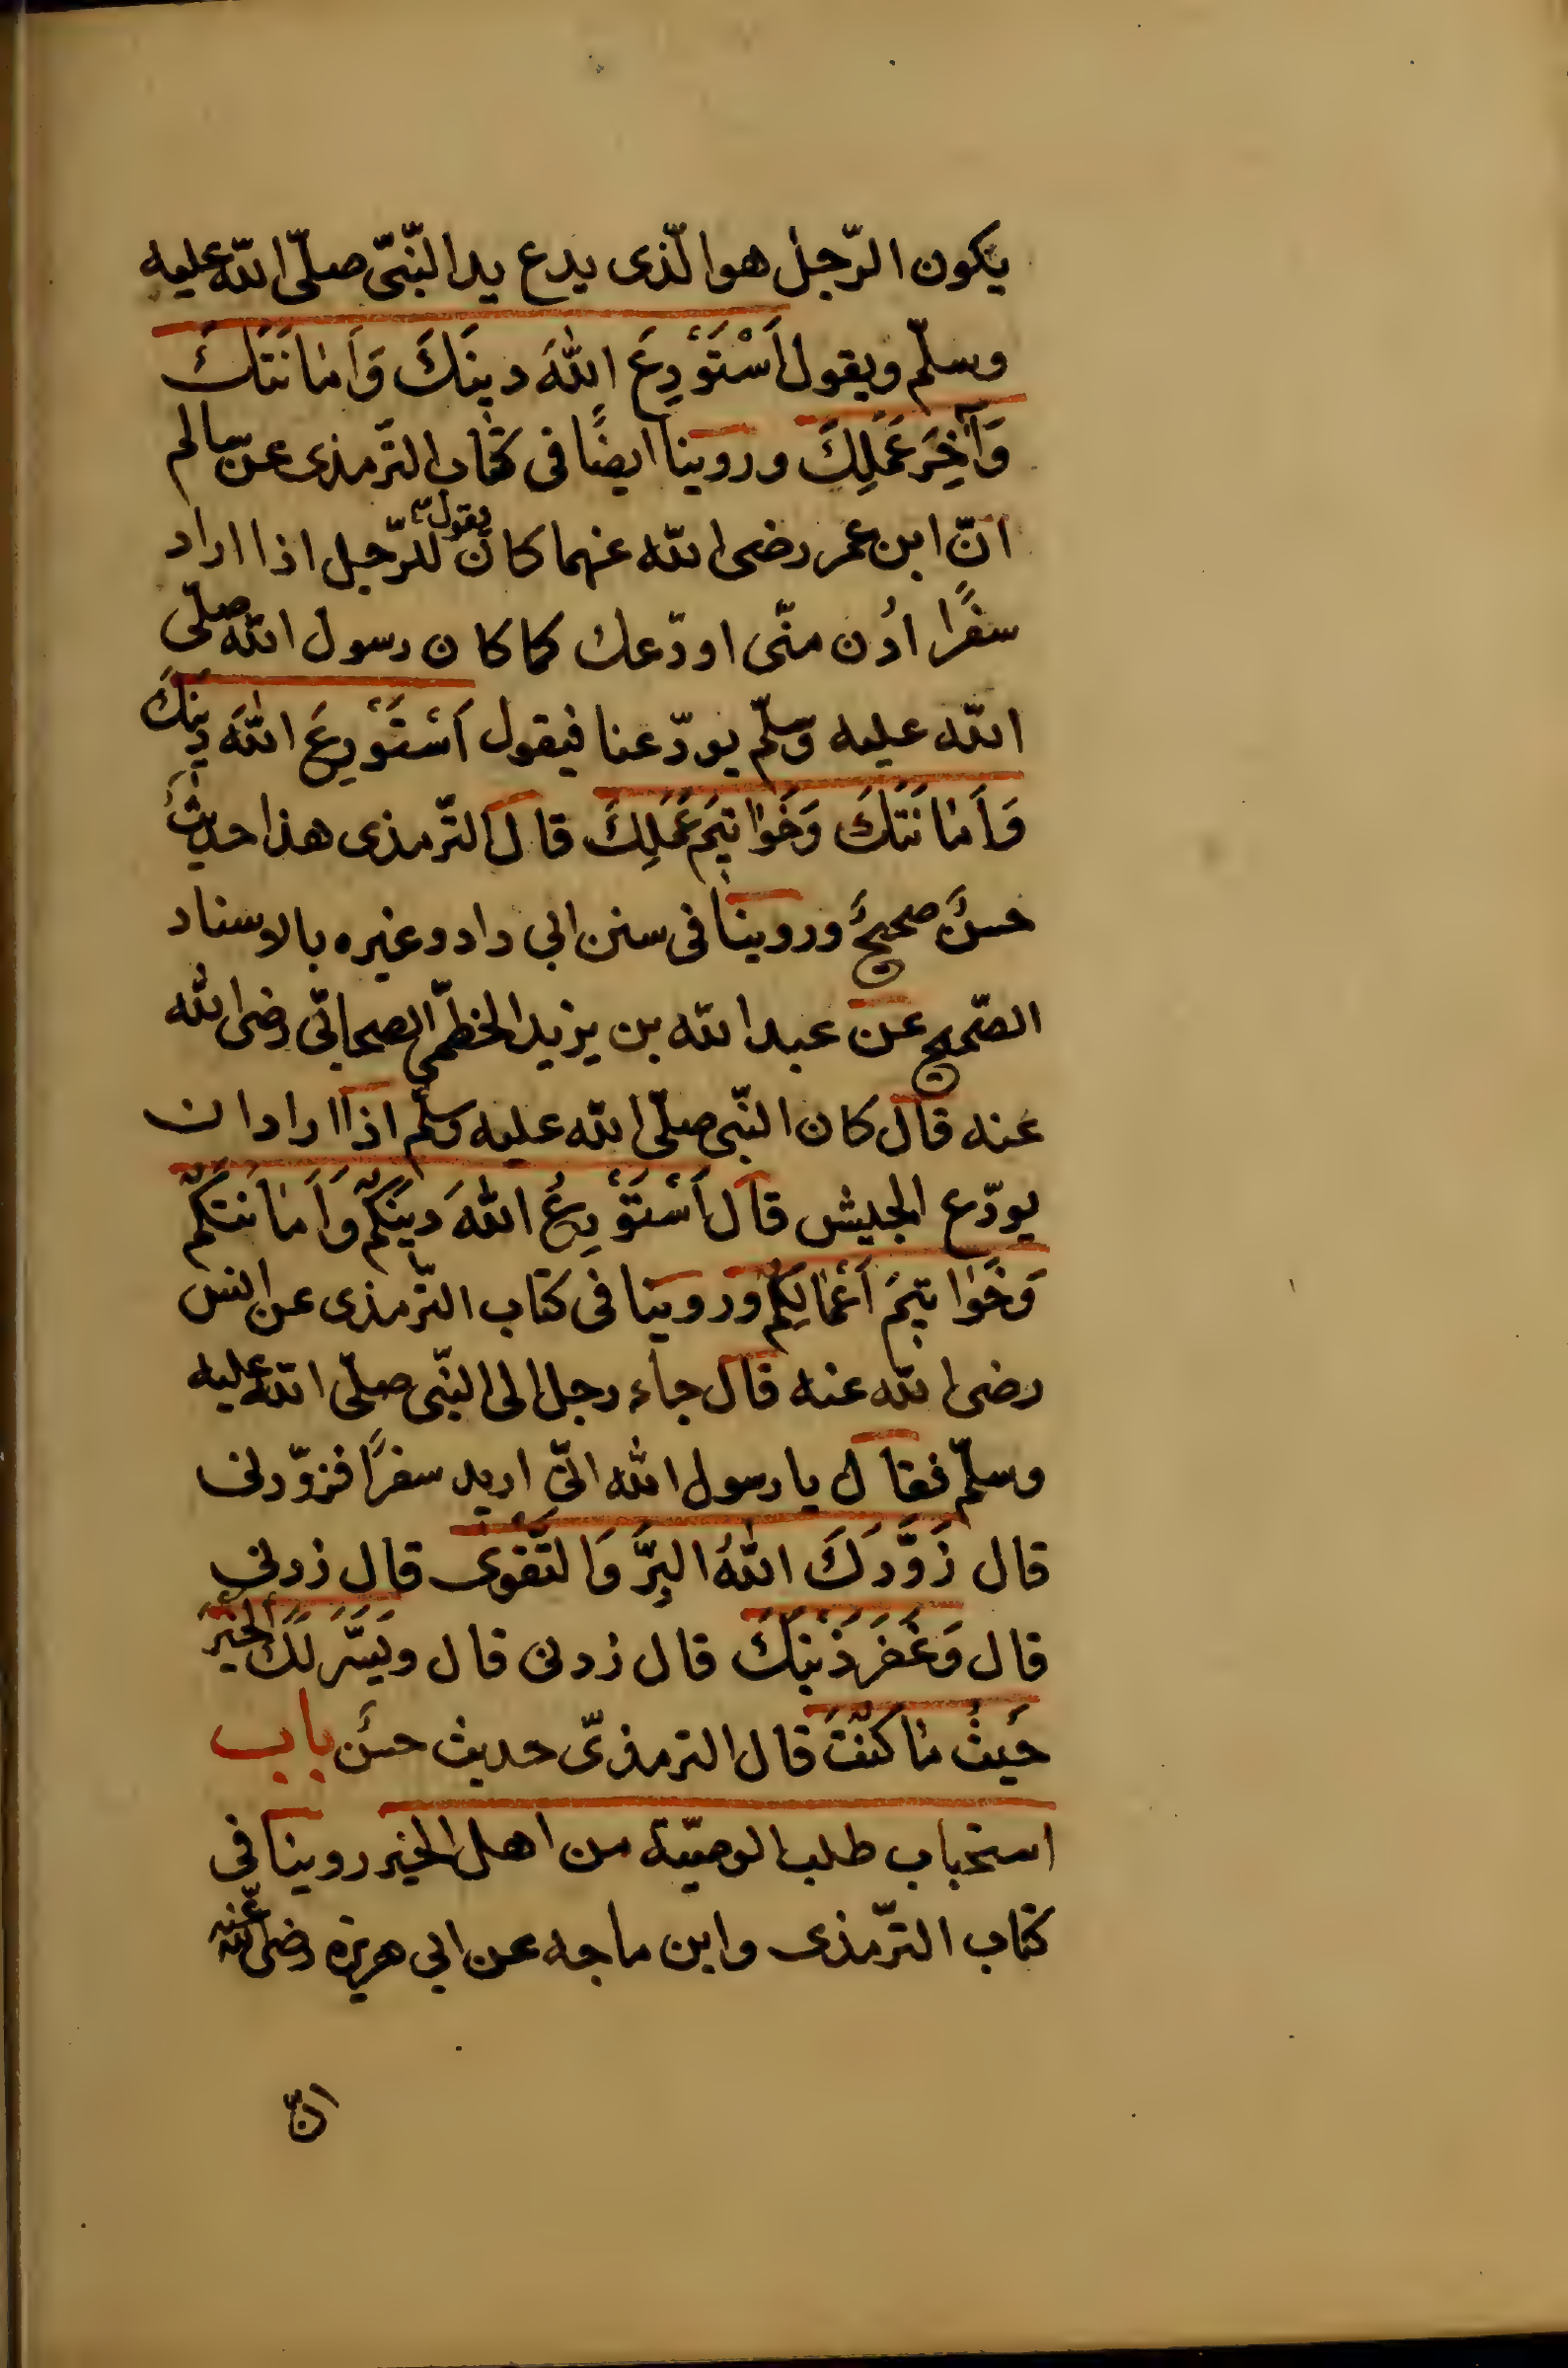 يكون الرّجل هو الّذى يدع يد النّبىّ صلّى اللّه عليه
وسلّم ويقول اَسْتَوْدِعَ اللّٰهَ دينَكَ وَاَمانَتَكَ
وَآخِرَ عَمَلِكَ وروينا ايضًا فى كتاب الترّمذى عن سالم
انّ ابن عمر رضى اللّه عنهما كان يقول للرّجل اذا اراد
سفرًا ادُن منّى اودّعك كما كان رسول اللّه صلّى
اللّه عليه وسلّم يودّعنا فيقول اَسْتَوْدِعَ اللّٰهَ دينَكَ
وَاَمانَتَكَ وَخَواتيمَ عَمَلِكَ قال الترّمذى هذا حديث
حسن صحيح وروينا فى سنن ابى داود وغيره بالاسناد
الصّحيح عن عبد اللّه بن يزيد الخطمىّ الصحابىّ رضى اللّه
عنه قال كان النّبى صلّى اللّه عليه وسلّم اذا اراد ان
يودّع الجيش قال اَسْتَوْدِعُ اللّٰهَ دينَكُمْ وَاَمانَتَكُمْ
وَخَواتيمَ اَعْمالِكُمْ وروينا فى كتاب الترّمذى عن انس
رضى اللّه عنه قال جاء رجل الى النّبى صلّى اللّه عليه
وسلّم فقال يا رسول اللّه انّى اريد سفرًا فزوّدنى
قال زَوَّدَكَ اللّٰهُ البِرَّ وَالتَّقوى قال زدنى
قال وَغَفَرَ ذَنْبَكَ قال زدنى قال ويَسَّرَ لَكَ الخَيْرَ
حَيثُ ما كُنْتَ قال الترمذىّ حديث حسن باب
استحباب طلب الوصيّة من اهل الخير روينا فى
كتاب الترّمذى وابن ماجه عن ابى هريرة رضى اللّه عنه
انّ